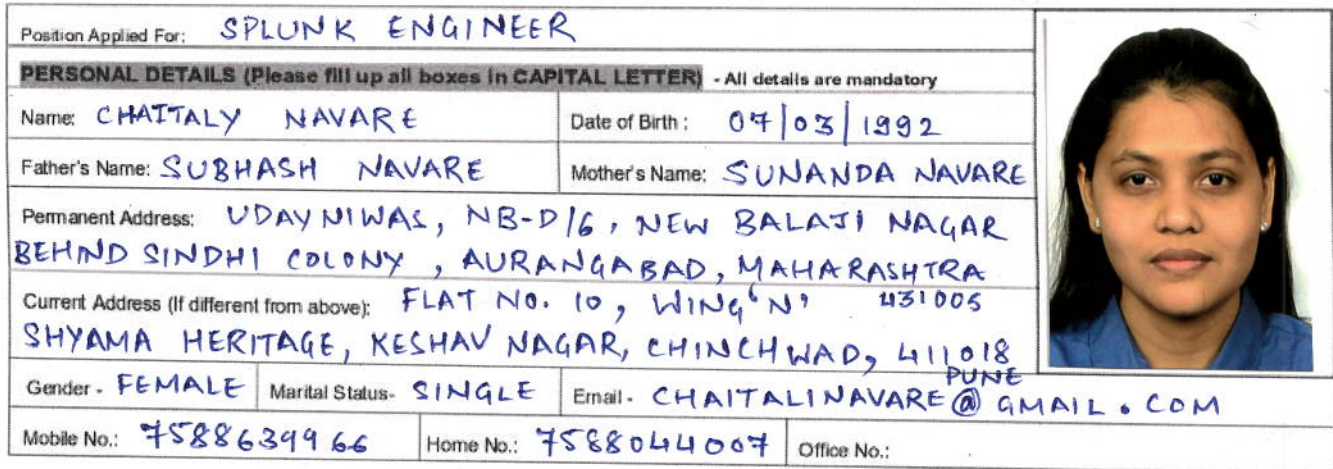 Position Applied For: SPLUNK ENGINEER
PERSONAL DETAILS (Please fill up all boxes in CAPITAL LETTER) - All details are mandatory
Name: CHAITALY NAVARE Date of Birth : 07/03/1992
Father's Name: SUBHASH NAVARE Mother's Name: SUNANDA NAVARE
Permanent Address: UDAY NIWAS, NB-D/6, NEW BALAJI NAGAR
BEHIND SINDHI COLONY, AURANGABAD, MAHARASHTRA
431005
Current Address (If different from above): FLAT NO. 10, WING 'N'
SHYAMA HERITAGE, KESHAV NAGAR, CHINCHWAD, 411018
PUNE
Gender - FEMALE Marital Status- SINGLE Email - CHAITALINAVARE@GMAIL.COM
Mobile No.: 7588639966 Home No.: 7588044007 Office No.: